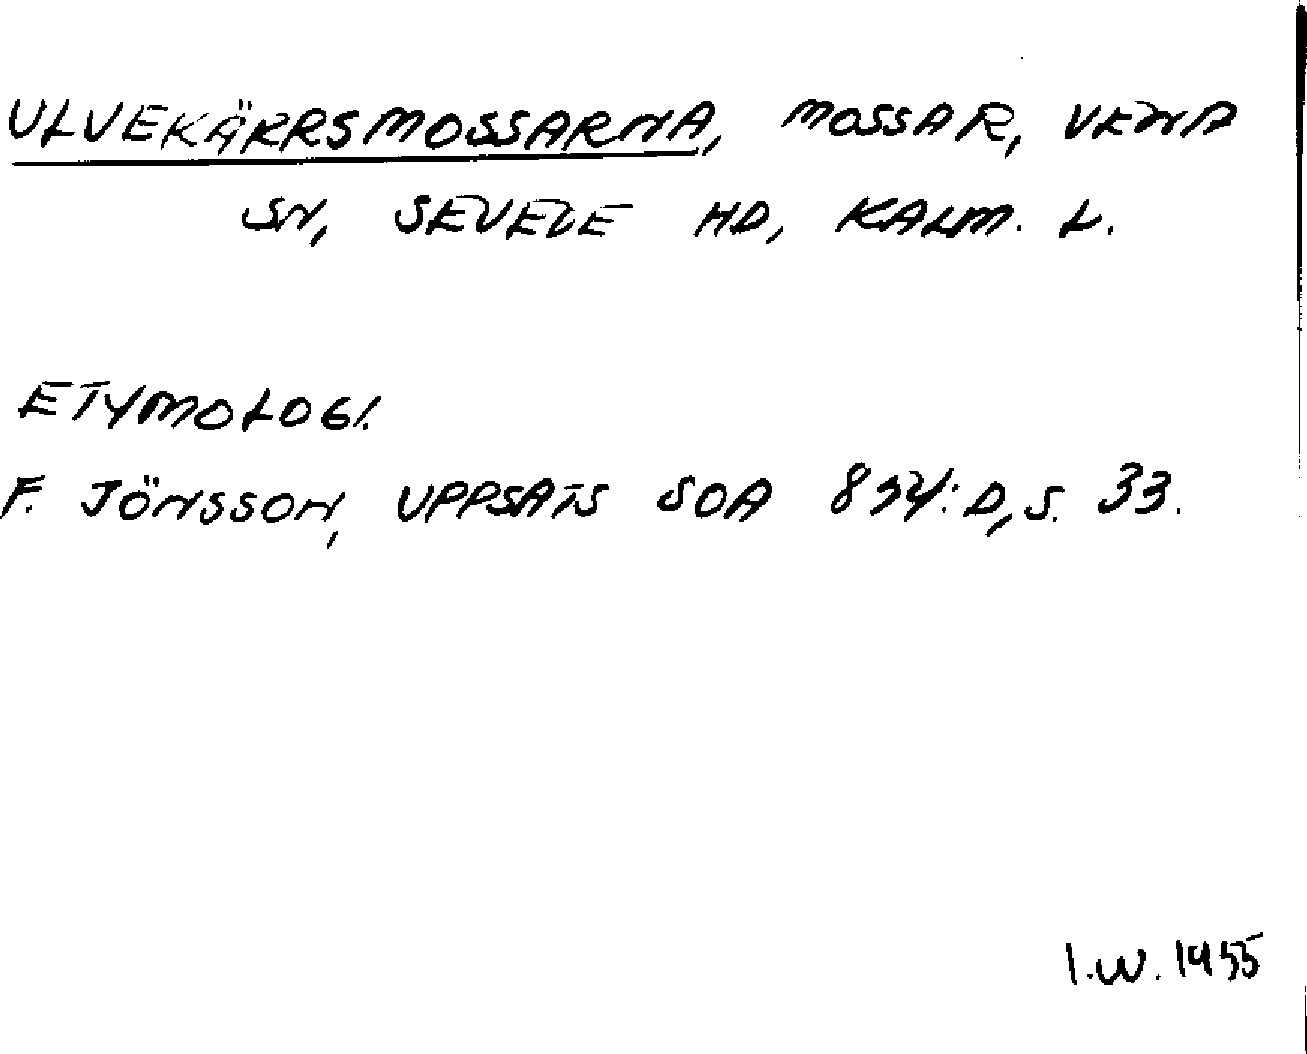 ULVEKÄRRSMOSSARNA, MOSSAR, VENA
SN, SEVEDE HD, KALM. L.
ETYMOLOGI.
F. JÖNSSON, UPPSATS SOA :D, S. 33.
I.W. 1955